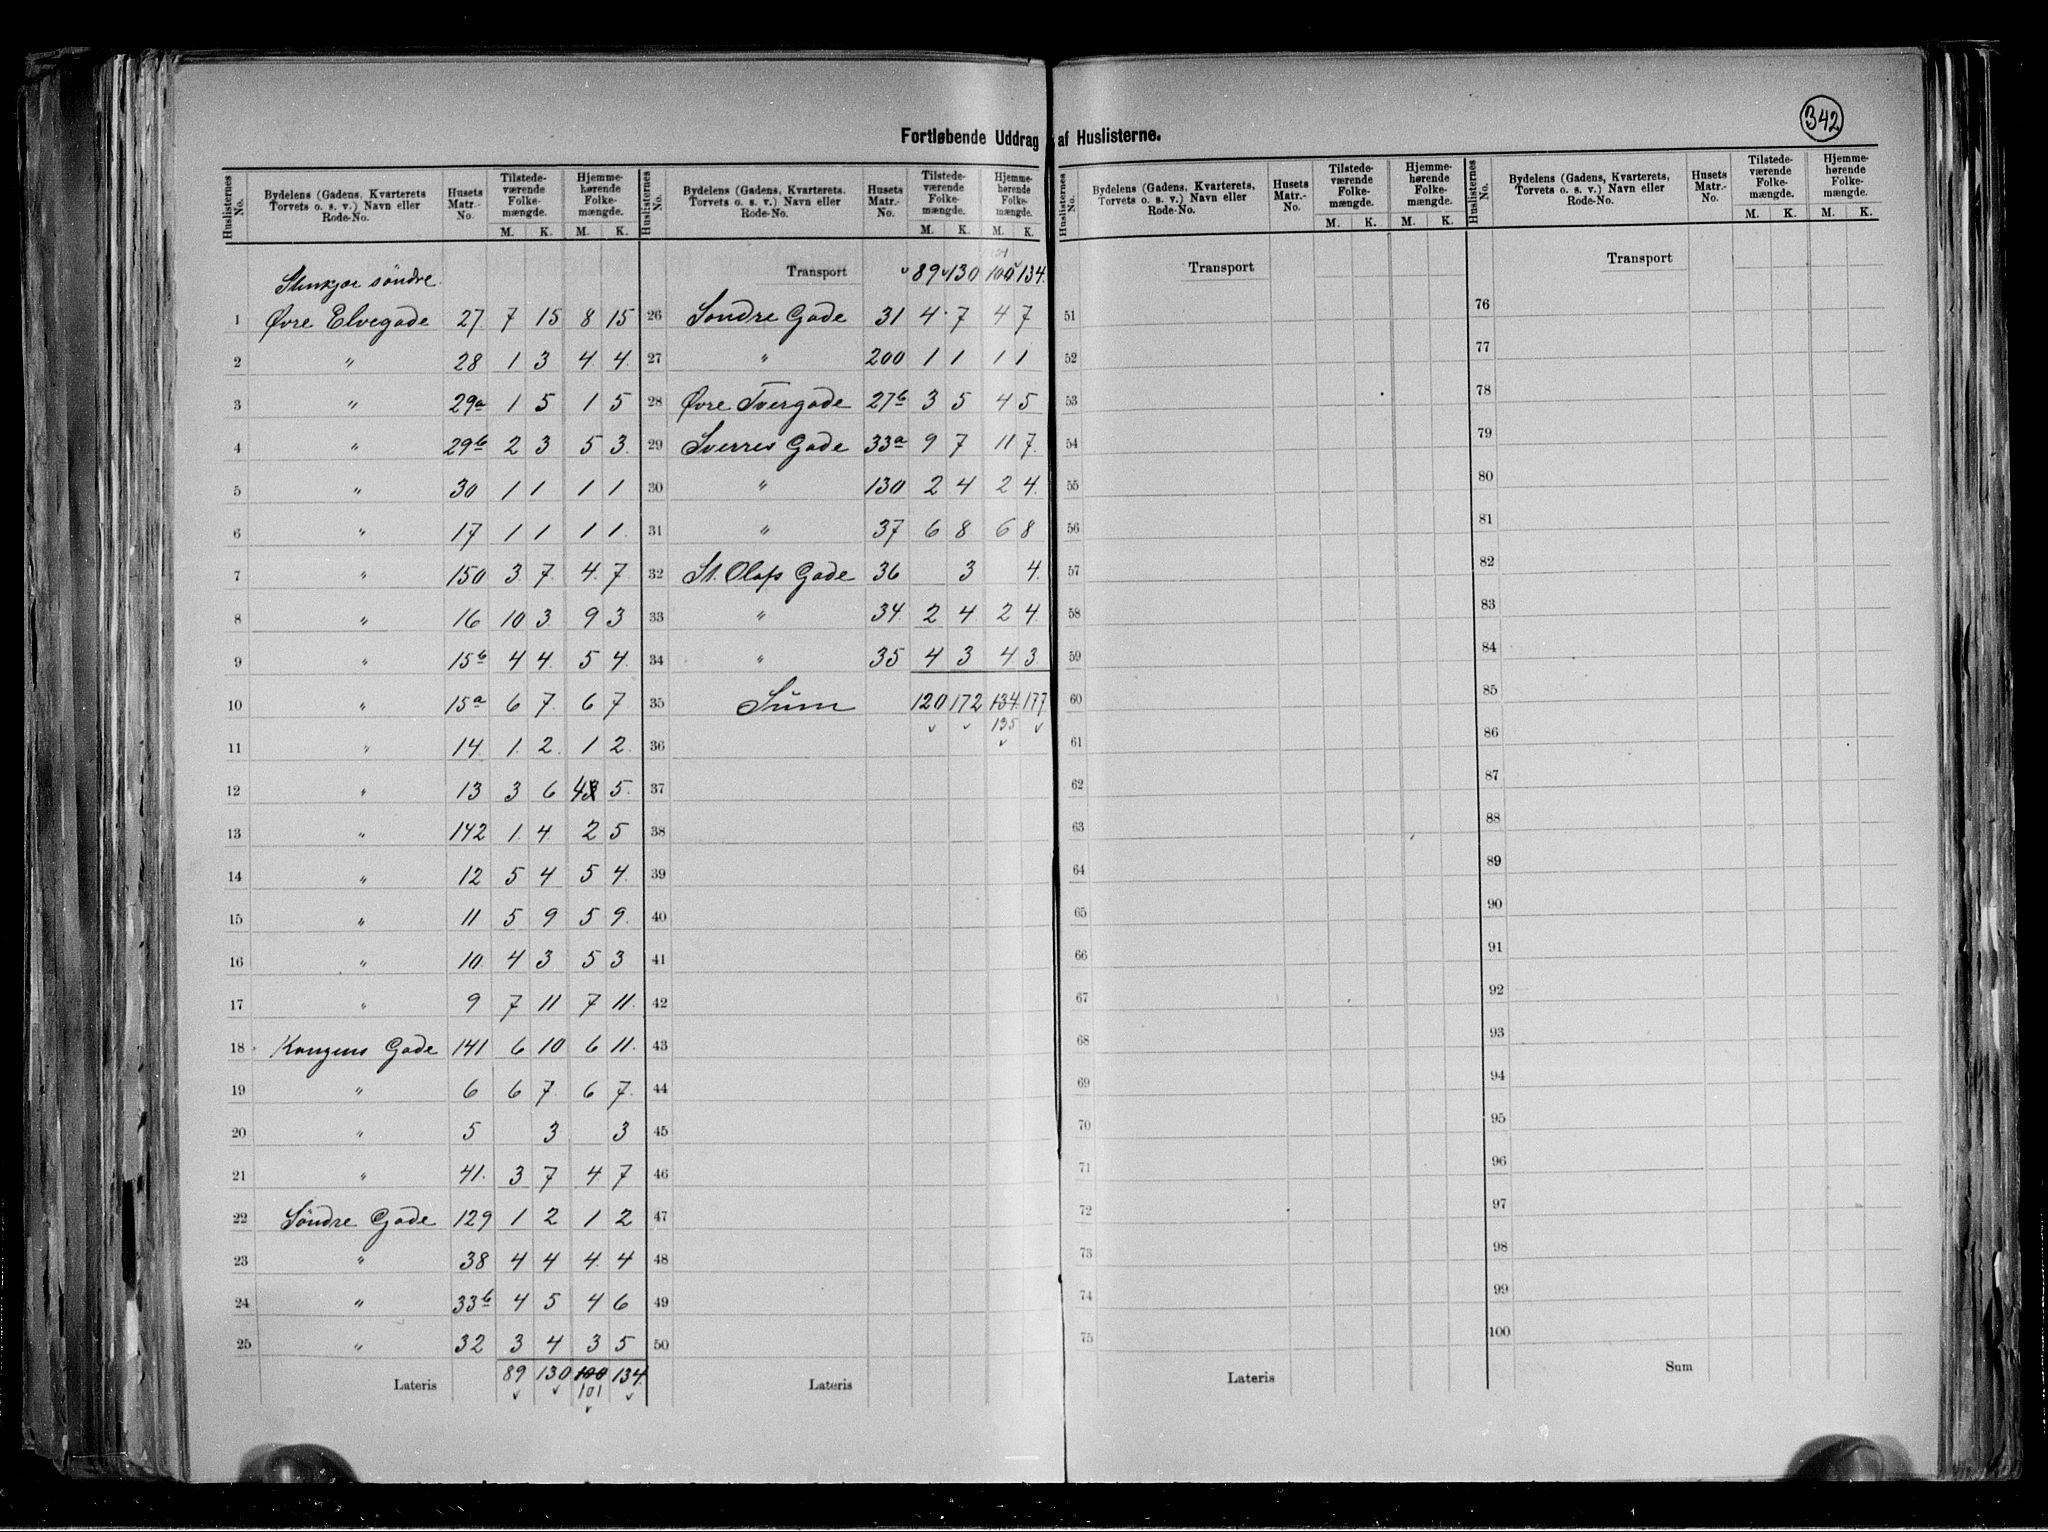 342
Fortløbende Uddrag af Huslisterne.
Huslisternes No. | Bydelens (Gadens, Kvarterets Torvets o. s. v.) Navn eller Rode-No. | Husets Matr.-No. | Tilstede-værende Folke-mængde. M. K. | Hjemme-hørende Folke-mængde. M. K.
Stenkjær söndre.
1 Øvre Elvegade 27 7 15 8 15
2 " 28 1 3 4 4
3 " 29a 1 5 1 5
4 " 29b 2 3 5 3
5 " 30 1 1 1 1
6 " 17 1 1 1 1
7 " 150 3 7 4 7
8 " 16 10 3 9 3
9 " 15b 4 4 5 4
10 " 15a 6 7 6 7
11 " 14 1 2 1 2
12 " 13 3 6 4 3 5
13 " 142 1 4 2 5
14 " 12 5 4 5 4
15 " 11 5 9 5 9
16 " 10 4 3 5 3
17 " 9 7 11 7 11
18 Kongens Gade 141 6 10 6 11
19 " 6 6 7 6 7
20 " 5 3 3
21 " 41 3 7 4 7
22 Söndre Gade 129 1 2 1 2
23 " 38 4 4 4 4
24 " 33b 4 5 4 6
25 " 32 3 4 3 5
Lateris 89 130 100 134
101
Huslisternes No. | Bydelens (Gadens, Kvarterets. Torvets o. s. v.) Navn eller Rode-No. | Husets Matr.-No. | Tilstede-værende Folke-mængde. M. K. | Hjemme-hørende Folke-mængde. M. K.
101
Transport 89 130 100 134
26 Söndre Gade 31 4 7 4 7
27 " 200 1 1 1 1
28 Øvre Tvergade 27b 3 5 4 5
29 Sverres Gade 33a 9 7 11 7
30 " 130 2 4 2 4
31 " 37 6 8 6 8
32 St. Olafs Gade 36 3 4
33 " 34 2 4 2 4
34 " 35 4 3 4 3
35 Sum 120 172 134 177
135
36
37
38
39
40
41
42
43
44
45
46
47
48
49
50
Lateris
Huslisternes No. | Bydelens (Gadens, Kvarterets, Torvets o. s. v.) Navn eller Rode-No. | Husets Matr.-No. | Tilstede-værende Folke-mængde. M. K. | Hjemme-hørende Folke-mængde. M. K.
Transport
51
52
53
54
55
56
57
58
59
60
61
62
63
64
65
66
67
68
69
70
71
72
73
74
75
Lateris
Huslisternes No. | Bydelens (Gadens, Kvarterets, Torvets o. s. v.) Navn eller Rode-No. | Husets Matr.-No. | Tilstede-værende Folke-mængde. M. K. | Hjemme-hørende Folke-mængde. M. K.
Transport
76
77
78
79
80
81
82
83
84
85
86
87
88
89
90
91
92
93
94
95
96
97
98
99
100
Sum